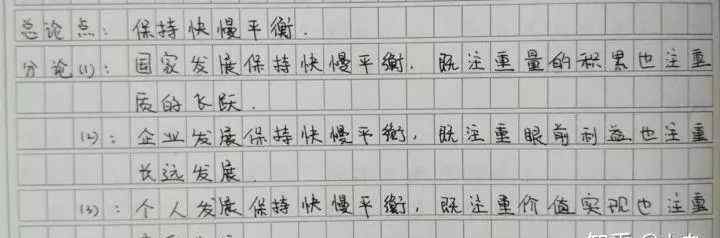 总论点：保持快慢平衡．
分论(1)：国家发展保持快慢平衡．既注重量的积累也注重
质的飞跃．
(2)：企业发展保持快慢平衡，既注重眼前利益也注重
长远发展．
(3)：个人发展保持快慢平衡，既注重价值实现也注重
知乎